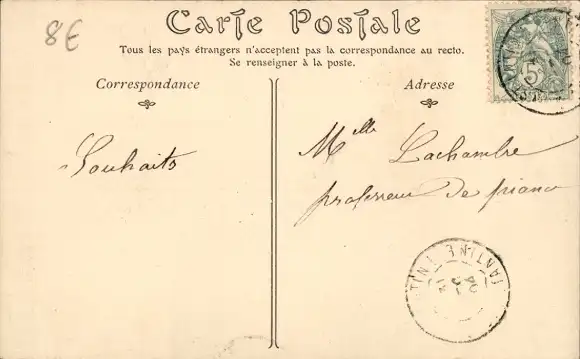 8€
Carte Postale
Tous les pays étrangers n'acceptent pas la correspondance au recto.
Se renseigner à la poste.
Correspondance
Adresse
5
Souhaits
Mlle Lachambre
professeur de piano